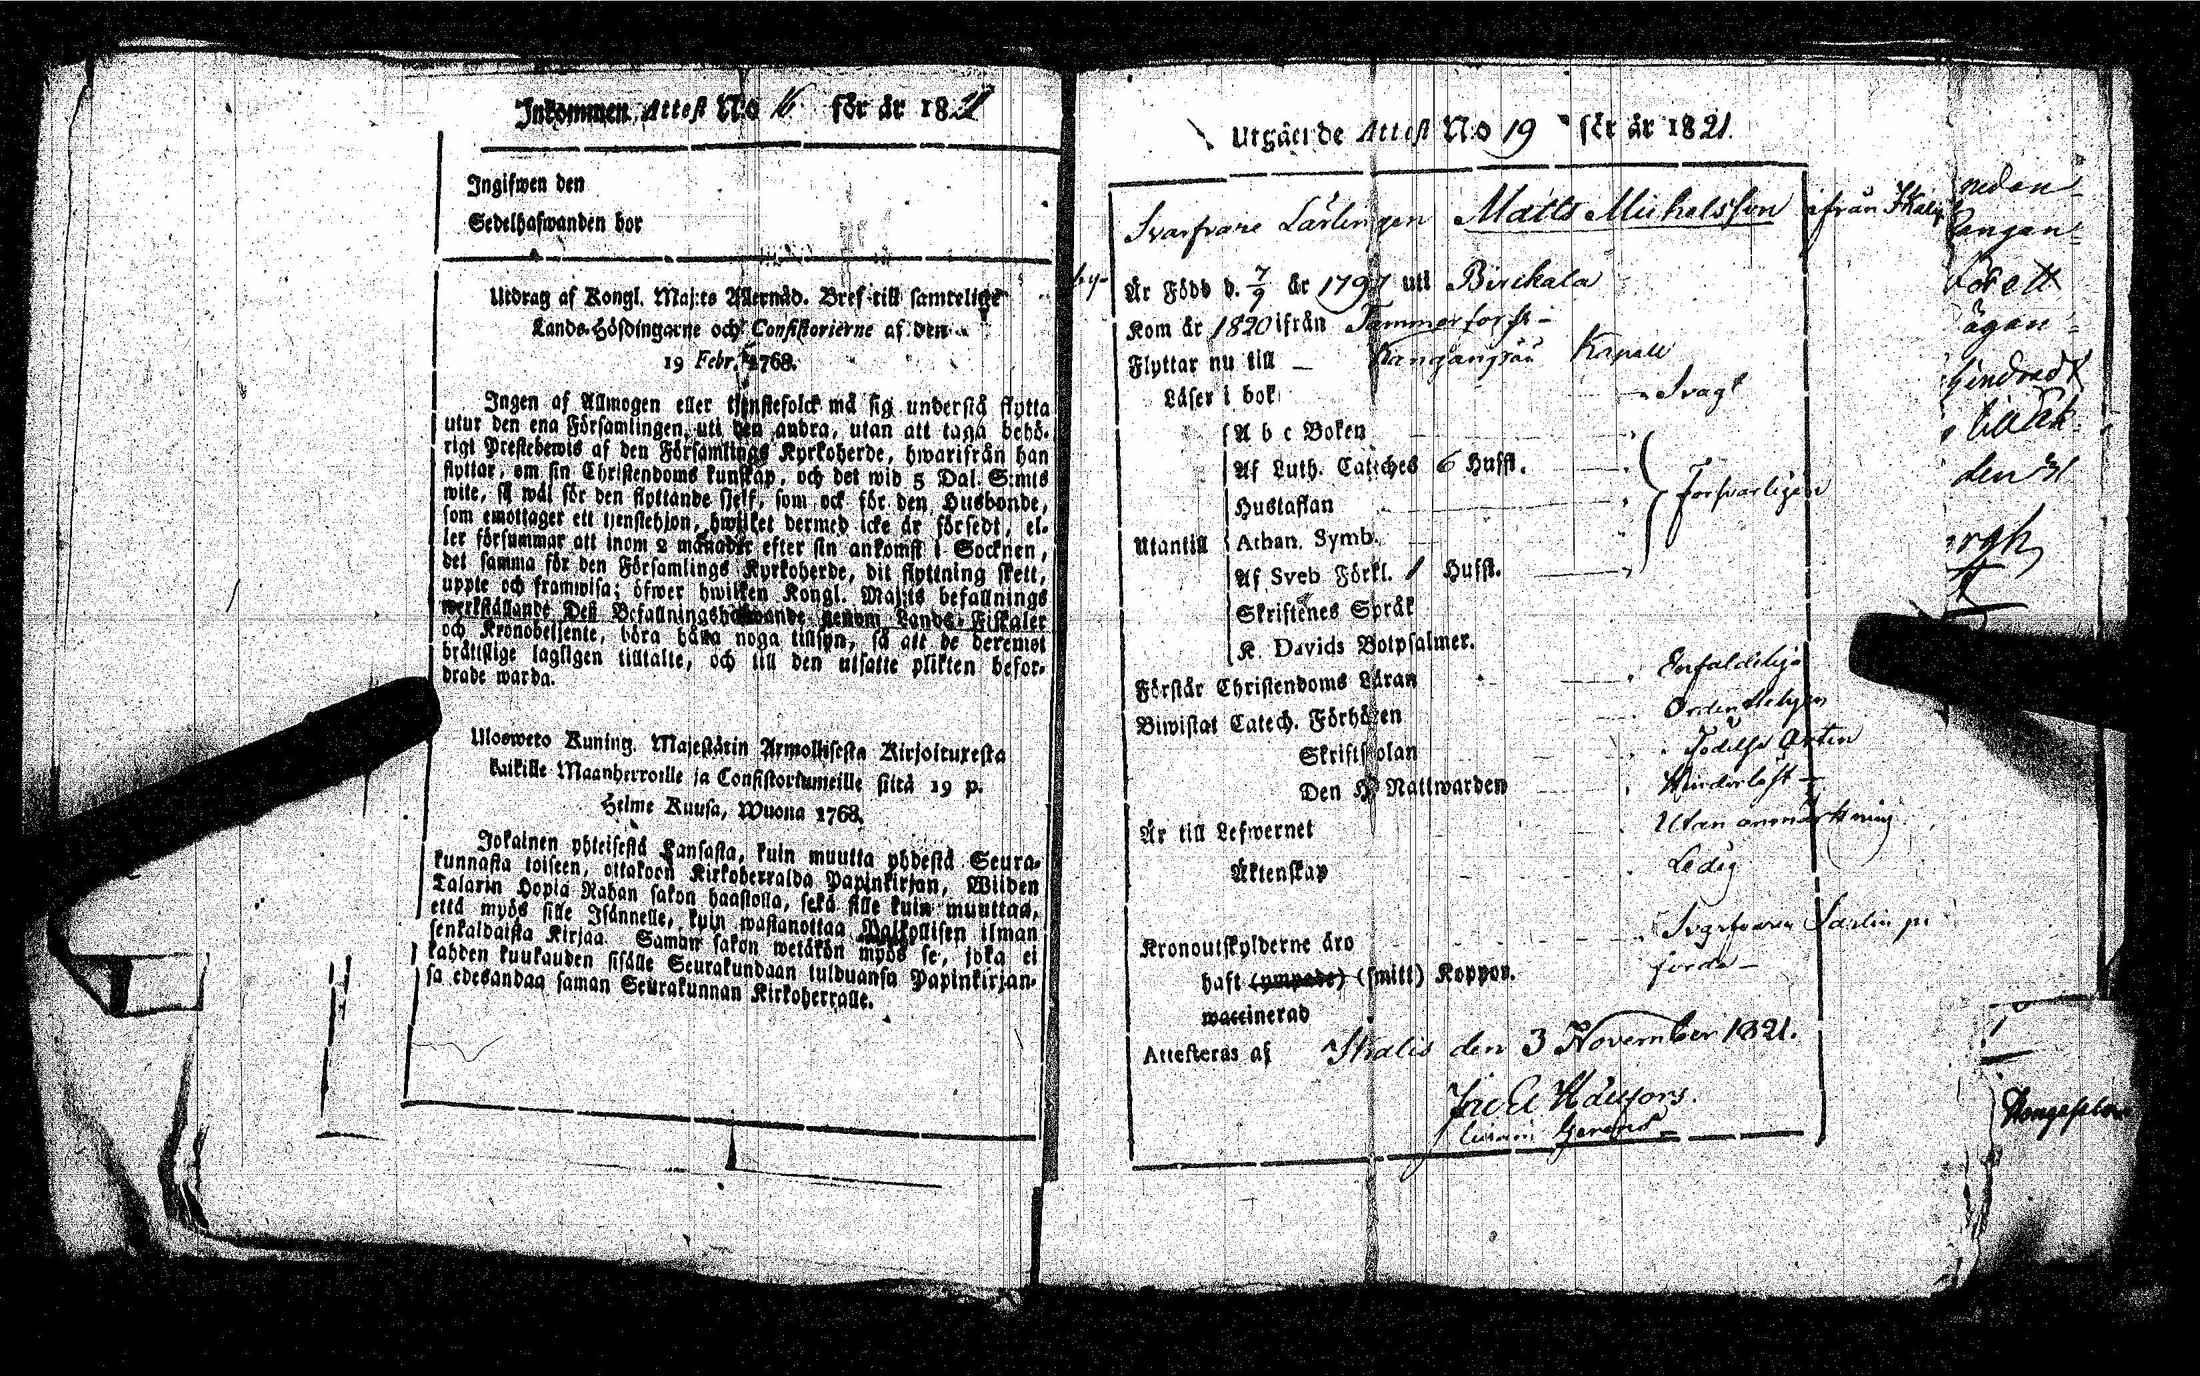 Inkommen Attest No 16 för år 1821
Ingifwen den
Sedelhafwanden bor
Utdrag af Kongl. Maj:ts Allernåd. Bref till samtelige
Lands-Höfdingarne och Consistorierne af den
19 Febr. 1768.
Ingen af Allmogen eller tjenstefolck må sig understå flytta
utur den ena Församlingen uti den andra, utan att taga behö-
rigt Prestebewis af den Församlings Kyrkoherde, hwarifrån han
flyttar, om sin Christendoms kunskap, och det wid 5 Dal. S:mts
wite, så wäl för den flyttande sjelf, som ock för den Husbonde,
som emottager ett tjenstehjon, hwilket dermed icke är försedt, el-
ler försummar att inom 2 månader efter sin ankomst i Socknen,
det samma för den Församlings Kyrkoherde, dit flyttning skett,
uppte och framwisa; öfwer hwilken Kongl. Maj:ts befallnings
werkställande Dess Befallningshafwande genom Lands-Fiskaler
och Kronobetjente, böra hålla noga tillsyn, så att de deremot
bråttslige lagligen tilltalte, och till den utsatte plikten befor-
drade warda.
Ulosweto Kuning. Majestätin Armollisesta Kirjoituxesta
kaikille Maanherroille ja Consistoriumeille siitä 19 p.
Helme Kuusa, Wuona 1768.
Jokainen yhteisestä Kansasta, kuin muutta yhdestä Seura-
kunnasta toiseen, ottakoon Kirkoherralda Papinkirjan, Wiiden
Talarin Hopia Rahan sakon haastolla, sekä sille kuin muuttaa,
että myös sille Isännelle, kuin wastanottaa Palkollisen ilman
senkaldaista Kirjaa. Saman sakon wetäkön myös se, joka ei
kahden kuukauden sisälle Seurakundaan tulduansa Papinkirjan-
sa edesandaa saman Seurakunnan Kirkoherralle.
Utgående Attest No 19 för år 1821.
Svarfvare Lärlingen Matts Michelsson ifrån Ikalis
by-
Är Född d. 7/9 år 1797 uti Birckala
Kom år 1820 ifrån Tammerfors -
Flyttar nu till - Kapell
Läser i bok Svagt
A b c Boken
Af Luth. Catéches 6 Hufst.
Hustaflan Försvarligen
Utantill Athan. Symb.
Af Sveb Förkl. 1 Hufst.
Skriftenes Språk
K. Davids Botpsalmer.
Förstår Christendoms Läran Enfaldeligt
Biwistat Catech. Förhören Ordentligen
Skriftskolan
Den H. Nattwarden Hinderlöst -
Är till Lefwernet Utan anmärkning
Äktenskap Ledig
Kronoutskylderne äro Svarfvare Lärling
haft (ympade) (smitt) Koppor.
waccinerad
Attesteras af Ikalis den 3 November 1821.
nedan
den 31